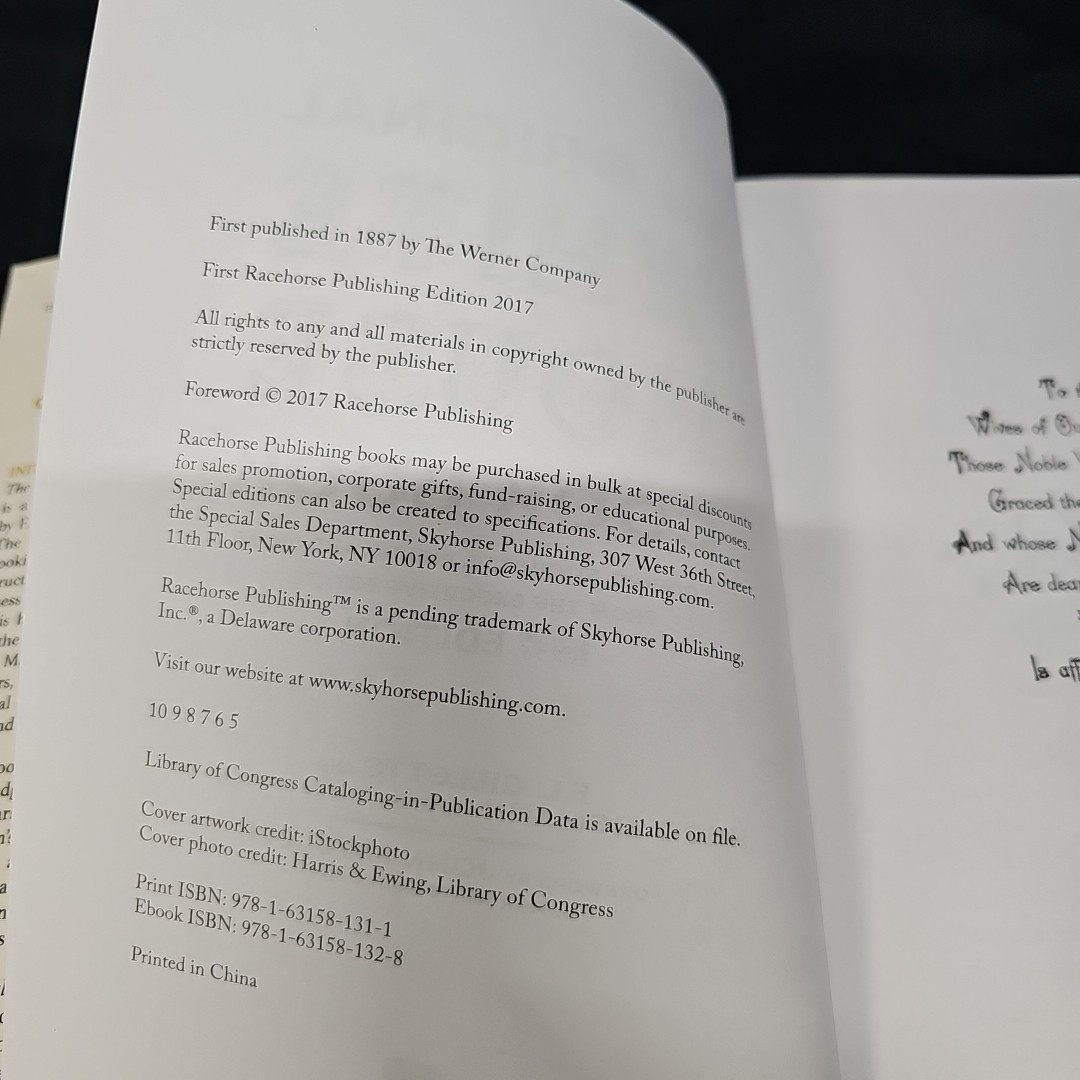 First published in 1887 by The Werner Company
First Racehorse Publishing Edition 2017
All rights to any and all materials in copyright owned by the publisher are
strictly reserved by the publisher.
Foreword © 2017 Racehorse Publishing
Racehorse Publishing books may be purchased in bulk at special discounts
for sales promotion, corporate gifts, fund-raising, or educational purposes.
Special editions can also be created to specifications. For details, contact
the Special Sales Department, Skyhorse Publishing, 307 West 36th Street,
11th Floor, New York, NY 10018 or info@skyhorsepublishing.com.
Racehorse Publishing™ is a pending trademark of Skyhorse Publishing,
Inc.®, a Delaware corporation.
Visit our website at www.skyhorsepublishing.com.
10 9 8 7 6 5
Library of Congress Cataloging-in-Publication Data is available on file.
Cover artwork credit: iStockphoto
Cover photo credit: Harris & Ewing, Library of Congress
Print ISBN: 978-1-63158-131-1
Ebook ISBN: 978-1-63158-132-8
Printed in China
To
Wives of
Those Noble
Graced the
And whose
Are dear
Is